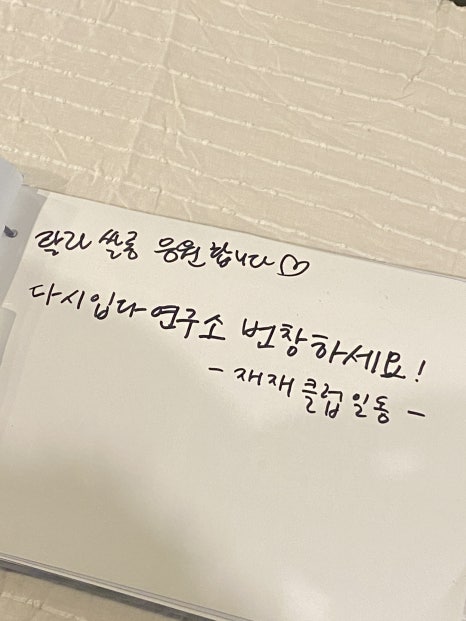 랄라 쌀롱 응원합니다♡
다시입다연구소 번창하세요!
- 재재클럽 일동 -